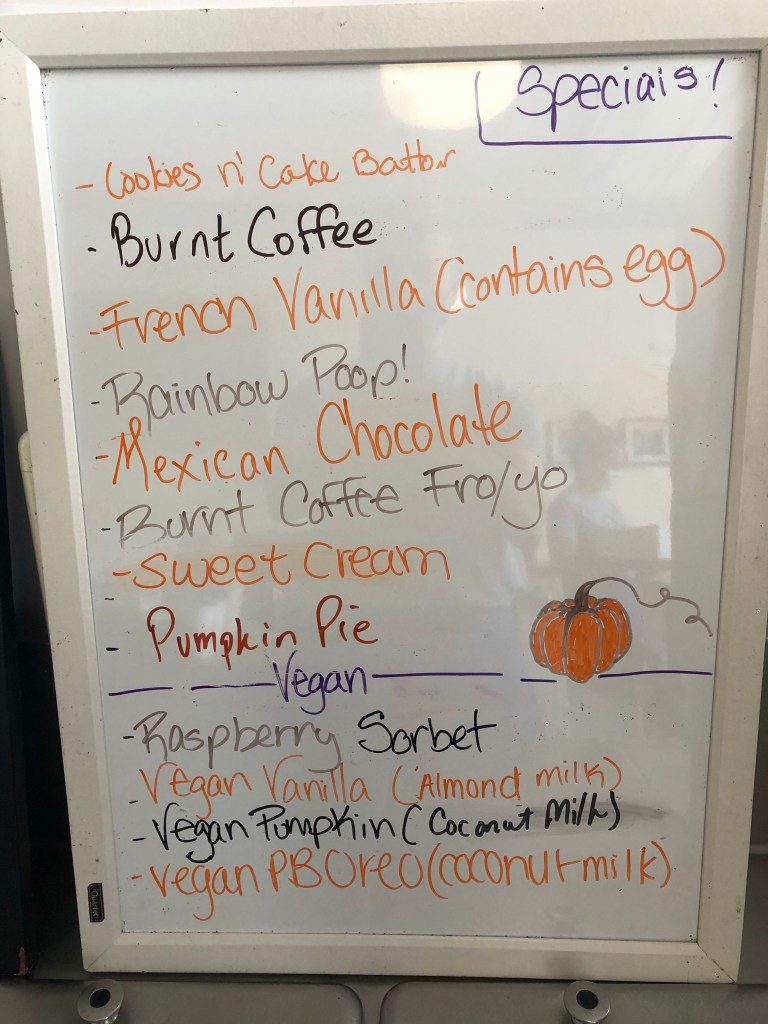 Specials!
- Cookies n' Cake Batter
- Burnt Coffee
- French Vanilla (contains egg)
- Rainbow Poop!
- Mexican Chocolate
- Burnt Coffee Fro/yo
- Sweet Cream
-
- Pumpkin Pie
Vegan
- Raspberry Sorbet
- Vegan Vanilla (Almond milk)
- Vegan Pumpkin (Coconut Milk)
- Vegan PB Oreo (coconut milk)
Quartet